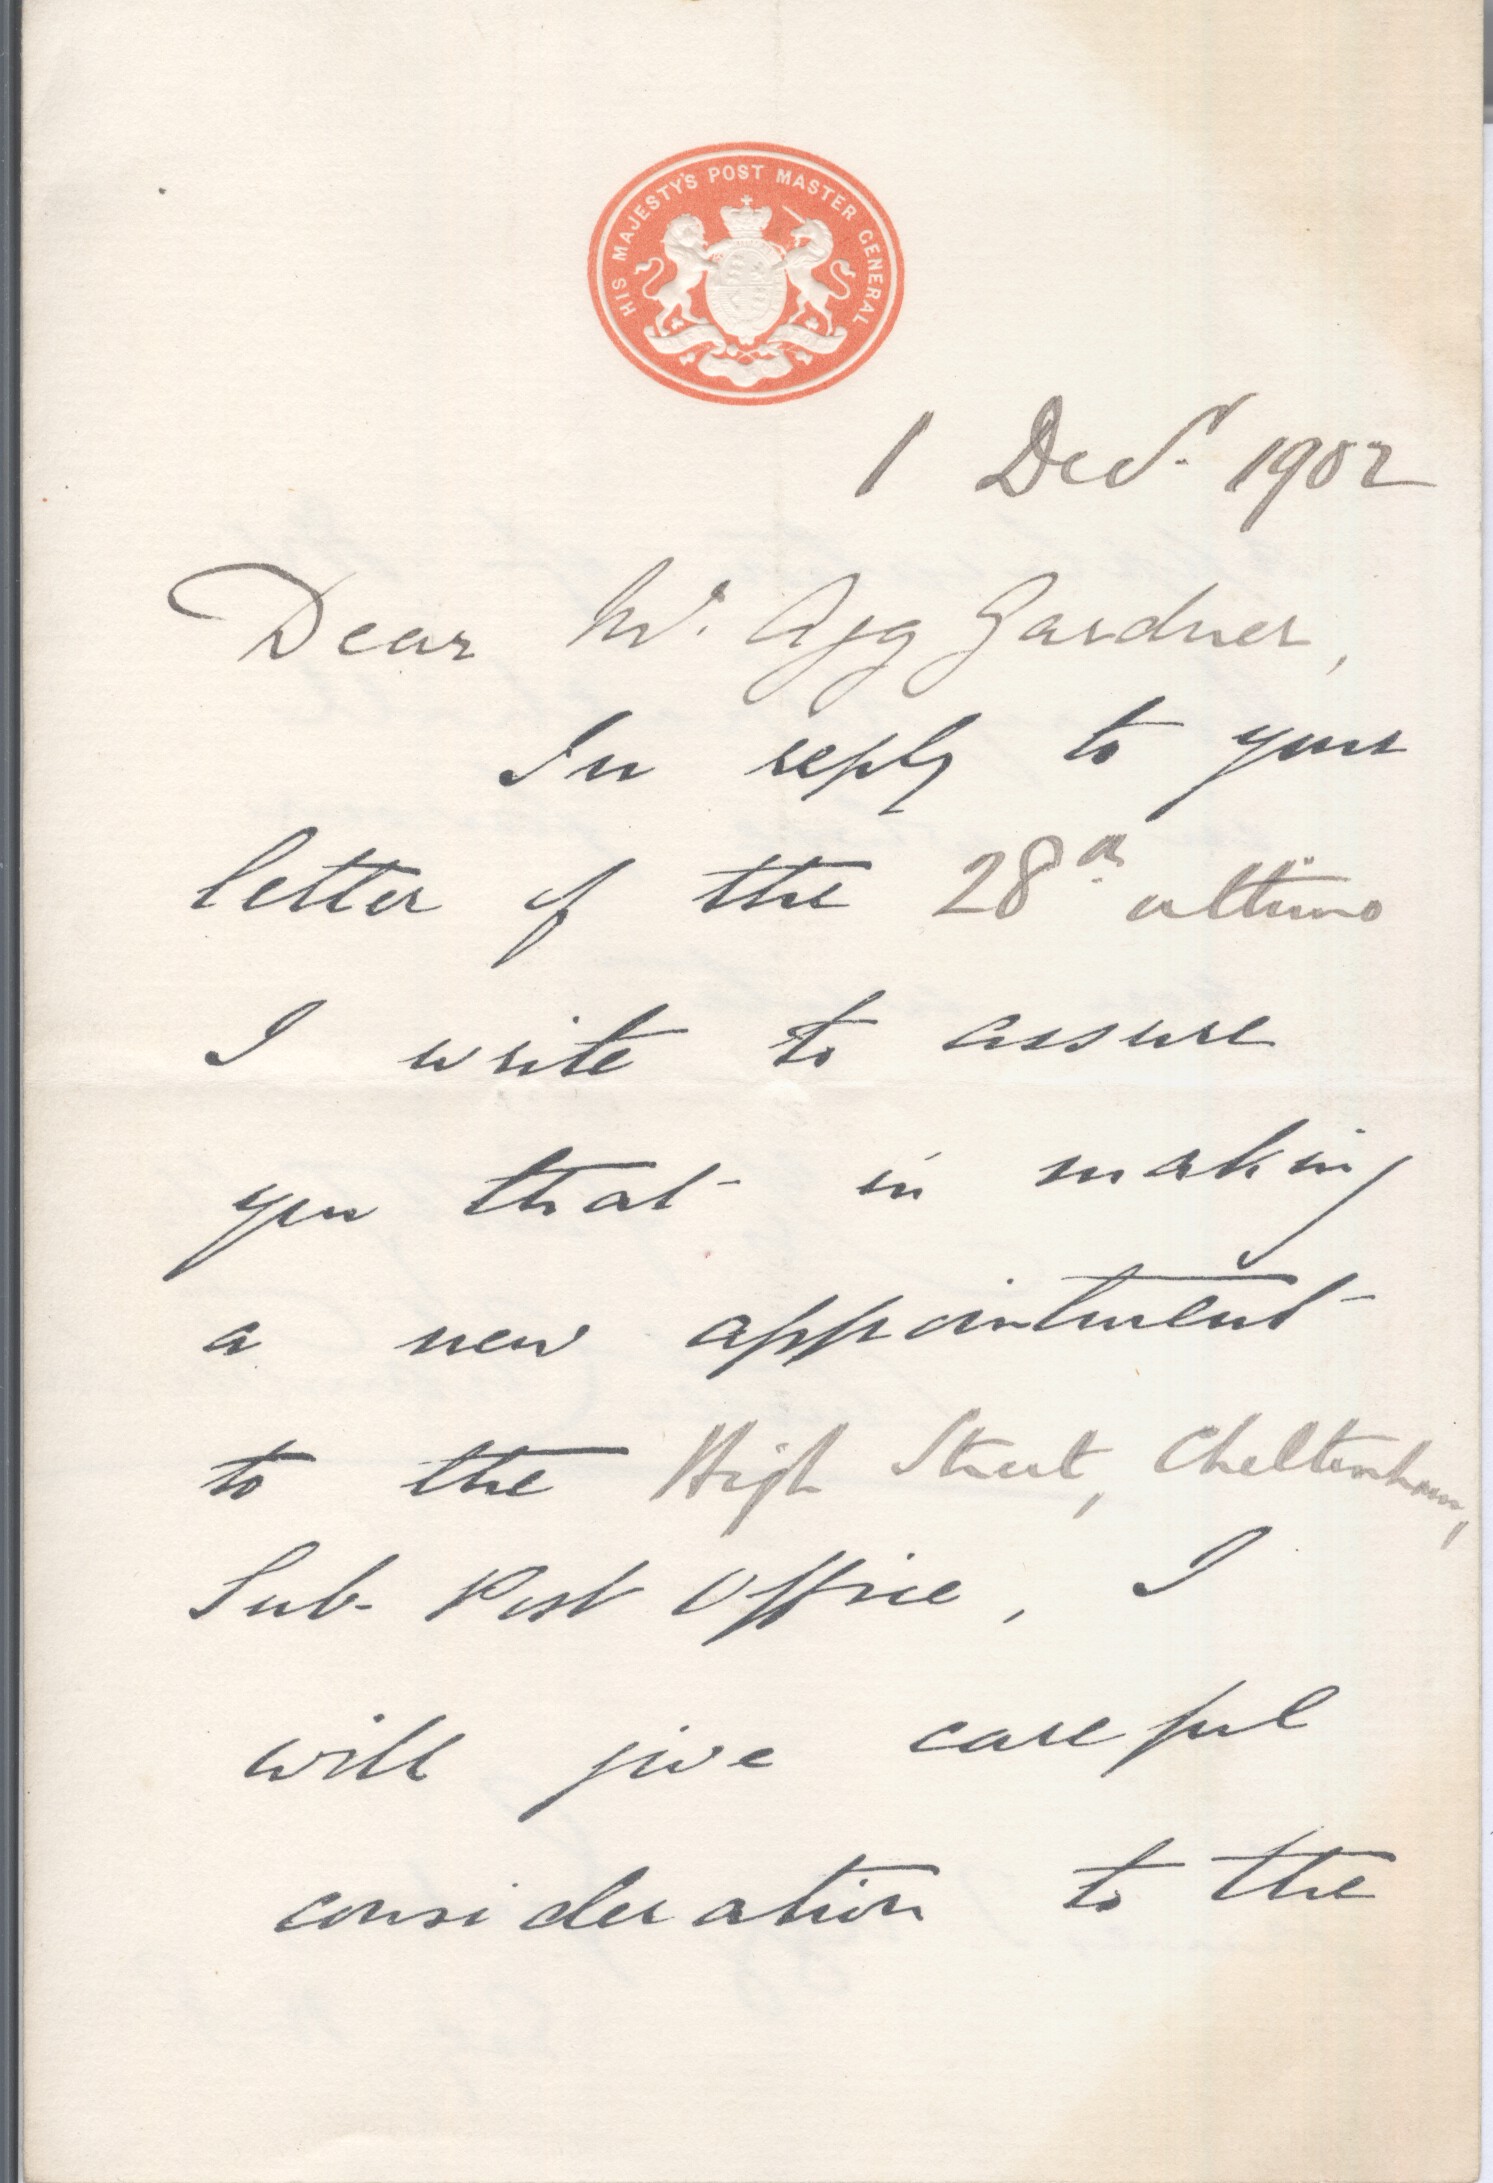 HIS MAJESTY'S POST MASTER GENERAL
1 Decr. 1902
Dear Mr. Agg Gardner,
In reply to your
letter of the 28th ultimo
I write to assure
you that in making
a new appointment
to the High Street, Cheltenham,
Sub-Post Office, I
will give careful
consideration to the